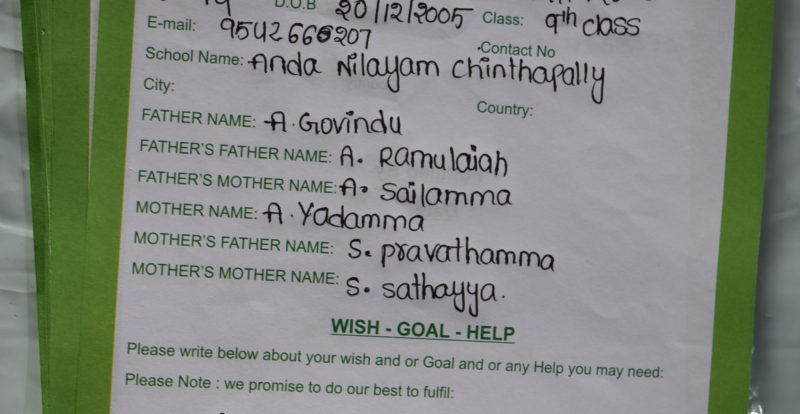 19 D.O.B 20/12/2005 Class: 9th class
E-mail: 9542666207 Contact No
School Name: Anda Nilayam Chinthapally
City: Country:
FATHER NAME: A. Govindu
FATHER'S FATHER NAME: A. Ramulaiah
FATHER'S MOTHER NAME: A. Sailamma
MOTHER NAME: A. Yadamma
MOTHER'S FATHER NAME: S. pravathamma
MOTHER'S MOTHER NAME: S. sathayya.
WISH - GOAL - HELP
Please write below about your wish and or Goal and or any Help you may need:
Please Note : we promise to do our best to fulfil: